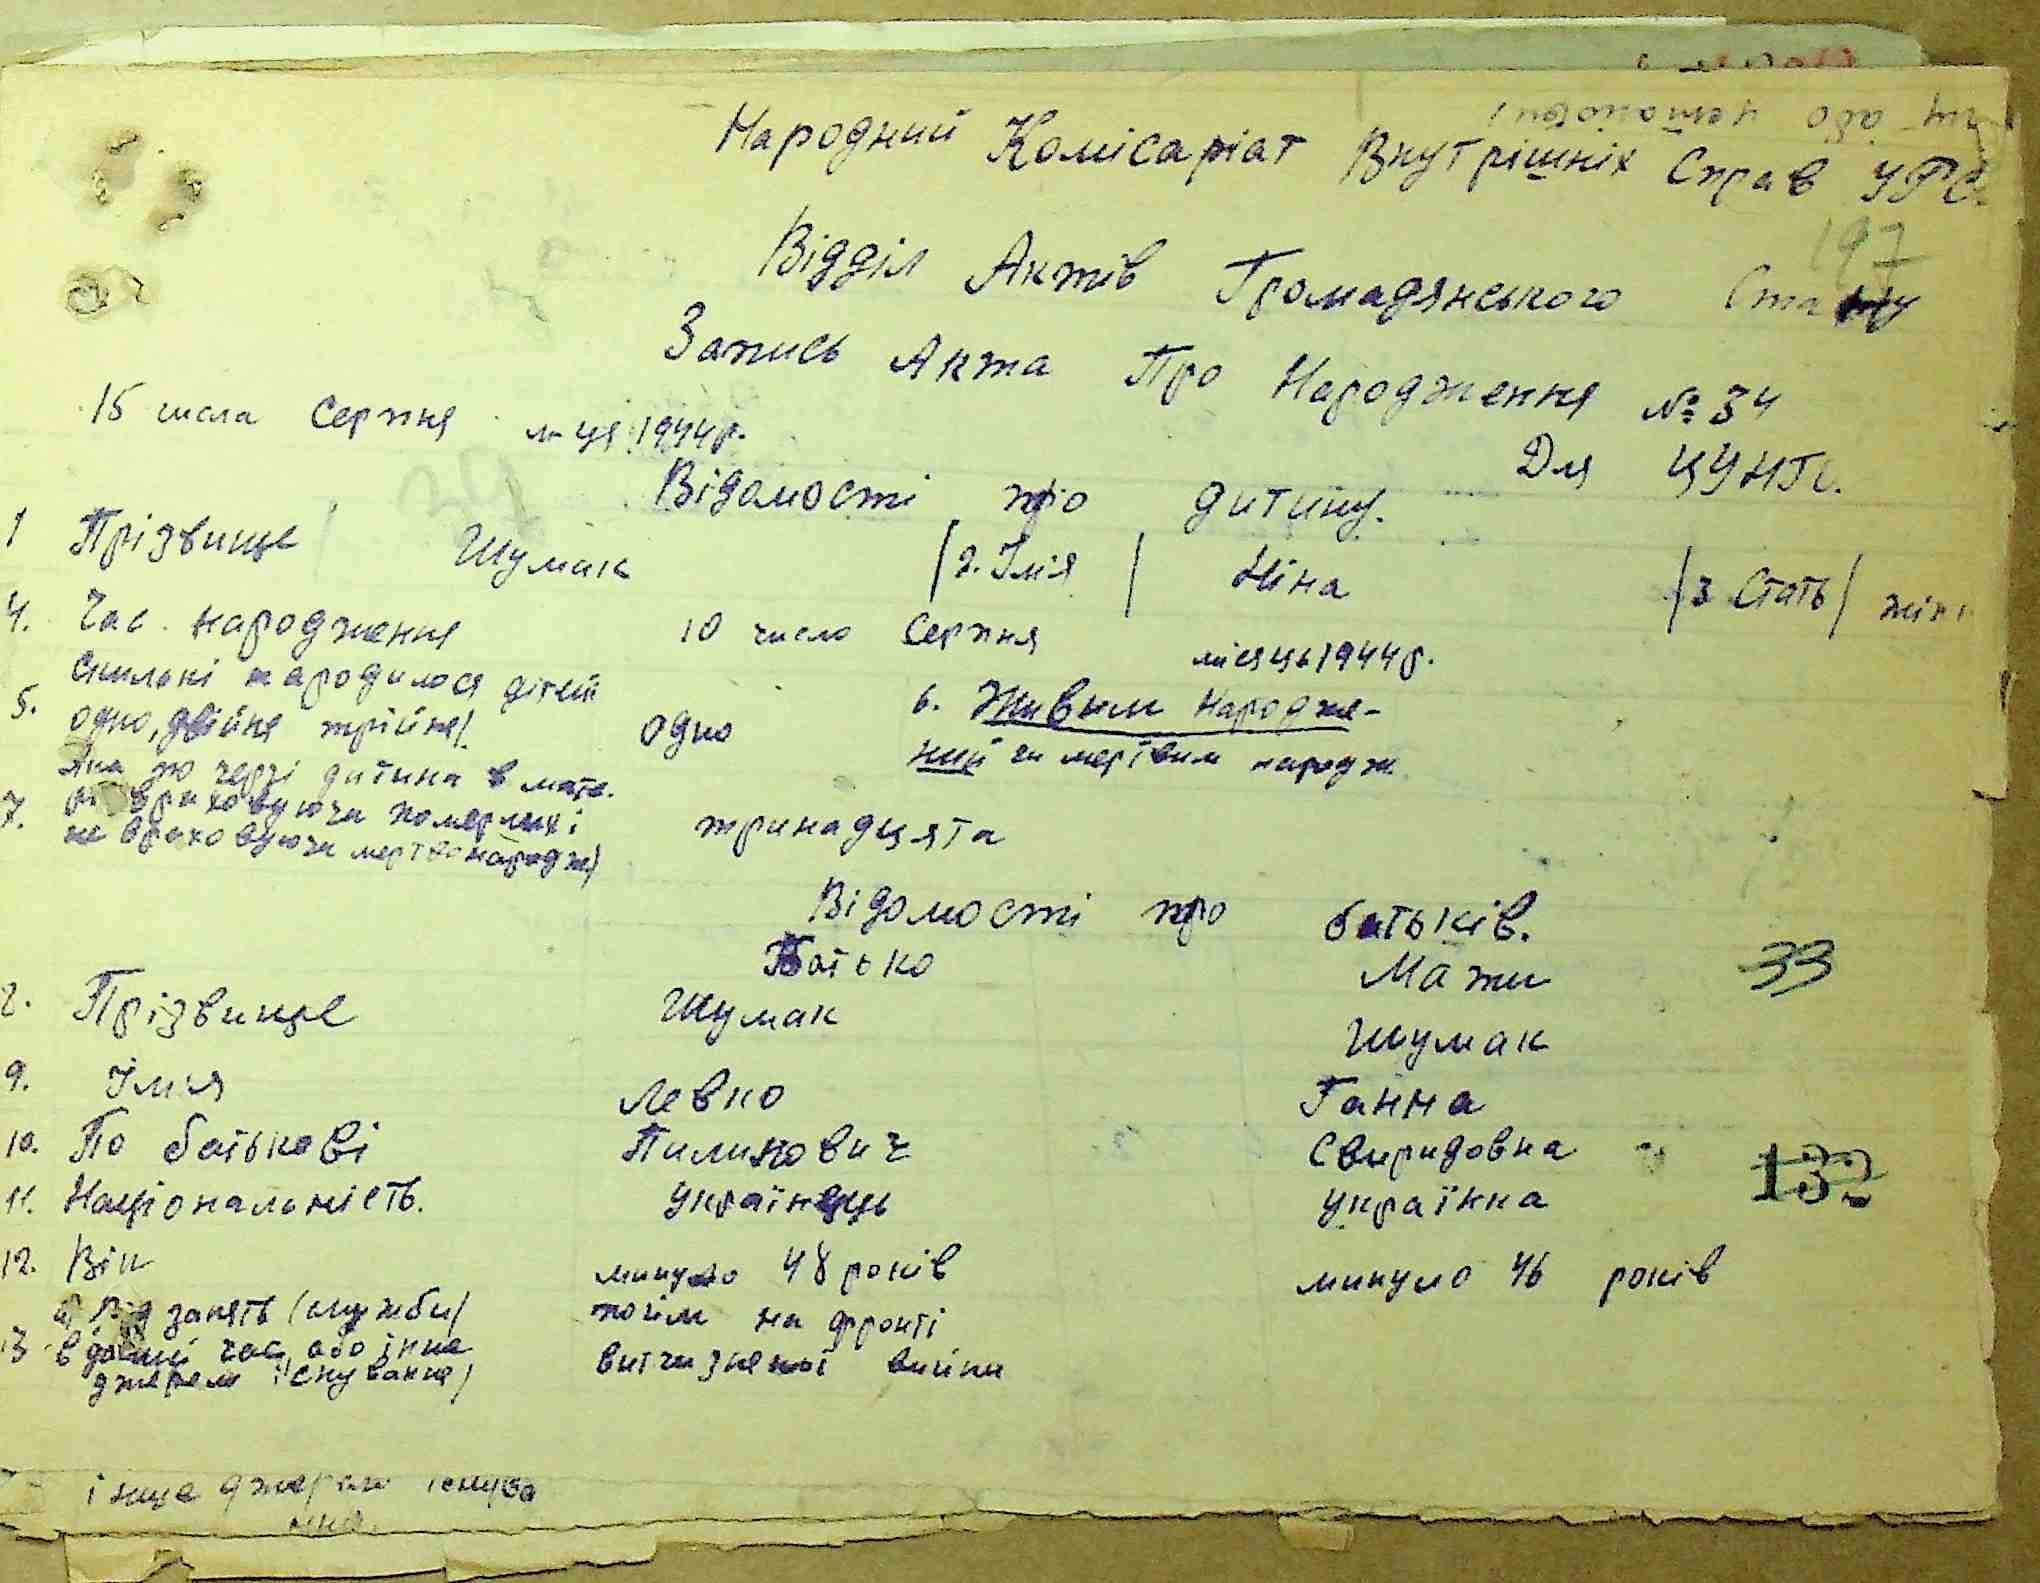 Народний Комісаріат Внутрішніх Справ УРС.
197
Відділ Актів Громадянського Стану
Запись Акта Про Народження № 34
15 числа Серпня м-ця 1944р.
Для ЦУНГО.
Відомості про дитину.
1 Прізвище / Шумак / 2. Імія / Ніна / 3 Стать / жін
4. Час народження 10 число Серпня місяць 1944р.
Скільки народилося дітей
5. одно, двійня трійня/. одно 6. Живим народже-
ний чи мертвим народж
Яка по черзі дитина в мате-
7. рі враховуючи померлих і тринадцята
не враховуючи мертвонародж)
Відомості про батьків.
Батько Мати 33
8. Прізвище Шумак Шумак
9. Імія Левко Ганна
10. По батькові Пилипович Свиридовна
132
11. Національність. Українець Українка
12. Вік минуло 48 років минуло 46 років
а) Від занять (служби/ на фронті
13 в даний час або інше вітчизненої війни
джерело існування)
інше джерело існува
ння.